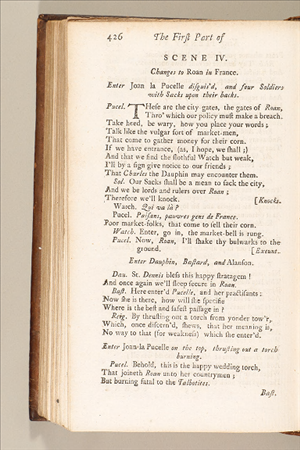 426 The First Part of
SCENE IV.
Changes to Roan in France.
Enter Joan la Pucelle disguis'd, and four Soldiers
with Sacks upon their backs.
Pucel. THese are the city gates, the gates of Roan,
Thro' which our policy must make a breach.
Take heed, be wary, how you place your words;
Talk like the vulgar sort of market-men,
That come to gather money for their corn.
If we have entrance, (as, I hope, we shall;)
And that we find the slothful Watch but weak,
I'll by a sign give notice to our friends;
That Charles the Dauphin may encounter them.
Sol. Our Sacks shall be a mean to sack the city,
And we be lords and rulers over Roan;
Therefore we'll knock. [Knocks.
Watch. Qui va là?
Pucel. Paisans, pauvres gens de France.
Poor market-folks, that come to sell their corn.
Watch. Enter, go in, the market-bell is rung.
Pucel. Now, Roan, I'll shake thy bulwarks to the
ground. [Exeunt.
Enter Dauphin, Bastard, and Alanson.
Dau. St. Dennis bless this happy stratagem!
And once again we'll sleep secure in Roan.
Bast. Here enter'd Pucelle, and her practisants:
Now she is there, how will she specifie
Where is the best and safest passage in?
Reig. By thrusting out a torch from yonder tow'r,
Which, once discern'd, shews, that her meaning is,
No way to that (for weakness) which she enter'd.
Enter Joan la Pucelle on the top, thrusting out a torch
burning.
Pucel. Behold, this is the happy wedding torch,
That joineth Roan unto her countrymen;
But burning fatal to the Talbotites.
Bast.